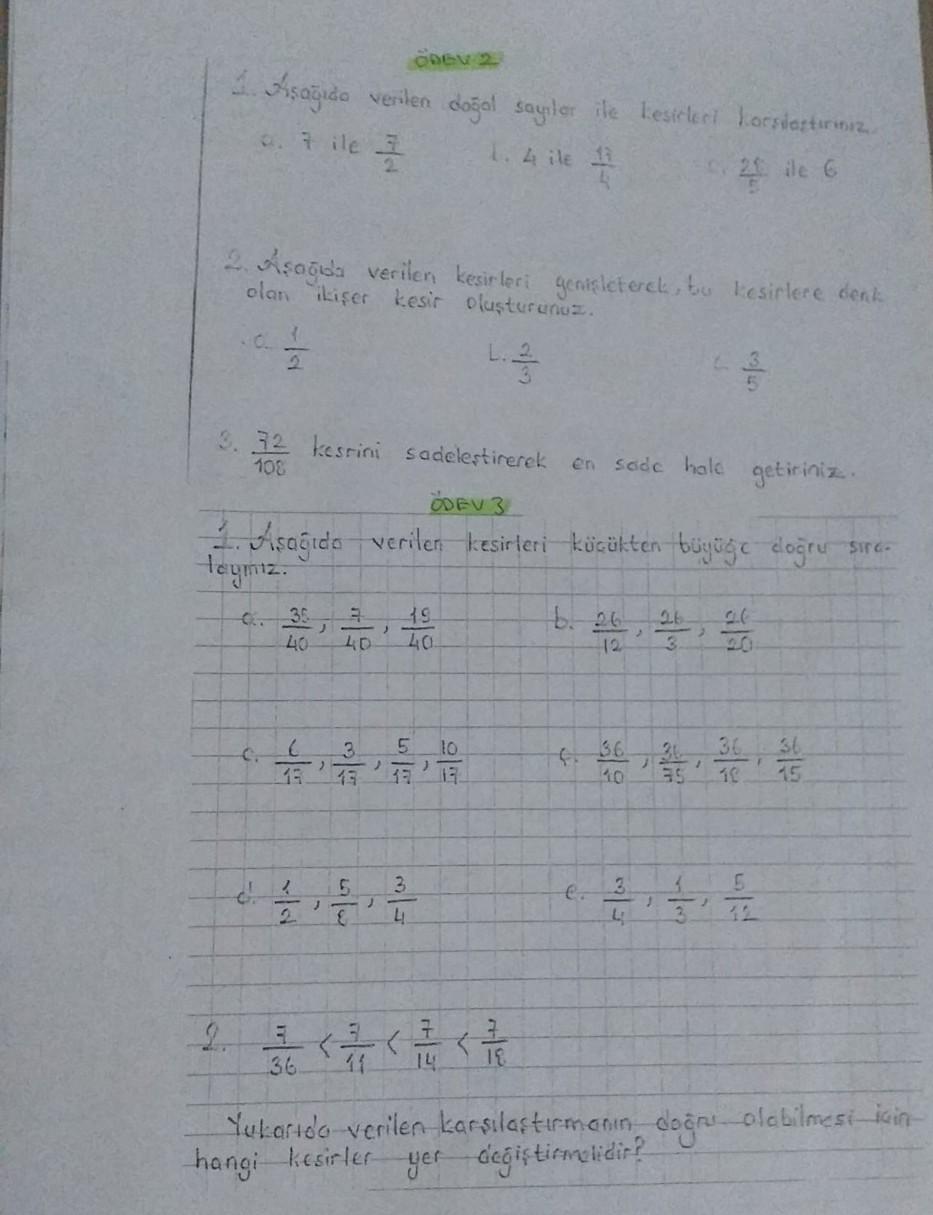 ÖDEV 2
1. Aşağıda verilen doğal sayılar ile kesirleri karşılaştırınız.
a. 7 ile 7/2 b. 4 ile 17/4 c. 28/5 ile 6
2. Aşağıda verilen kesirleri genişleterek, bu kesirlere denk
olan ikişer kesir oluşturunuz.
a. 1/2 b. 2/3 c. 3/5
3. 72/108 kesrini sadeleştirerek en sade hale getiriniz.
ÖDEV 3
1. Aşağıda verilen kesirleri küçükten büyüğe doğru sıra-
layınız.
a. 35/40, 7/40, 19/40 b. 26/12, 26/3, 26/20
c. 6/17, 3/17, 5/17, 10/17 ç. 36/10, 36/75, 36/18, 36/15
d. 1/2, 5/8, 3/4 e. 3/4, 1/3, 5/12
2. 7/36 < 7/11 < 7/14 < 7/18
Yukarıda verilen karşılaştırmanın doğru olabilmesi için
hangi kesirler yer değiştirmelidir?